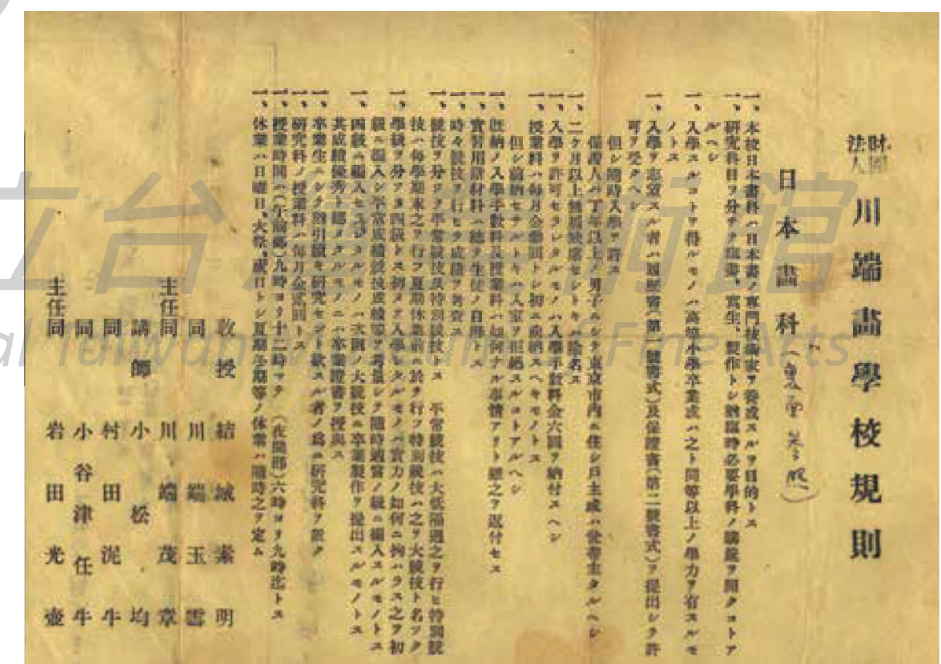 財團法人 川端畫學校規則
日本畫科
一、本校日本畫科ハ日本畫ノ專門技術家ヲ養成スルヲ目的トス
一、研究科目ヲ分チテ臨畫、寫生、製作トシ猶臨時必要學科ノ講筵ヲ開クコトア
ルヘシ
一、入學スルコトヲ得ルモノハ高等小學卒業或ハ之ト同等以上ノ學力ヲ有スルモ
ノトス
一、入學ヲ志願スル者ハ履歷書(第一號書式)及保證書(第二號書式)ヲ提出シテ許
可ヲ受クヘシ
但シ隨時入學ヲ許ス
保證人ハ丁年以上ノ男子ニシテ東京市內ニ住シ戶主或ハ世帶主タルヘシ
一、二ケ月以上無屆缺席セシトキハ除名ス
一、入學ヲ許可セラレタルモノハ入學手數料金六圓ヲ納付スヘシ
一、授業料ハ每月金參圓トシ初ニ前納スヘキモノトス
但シ前納セサルトキハ入室ヲ拒絕スルコトアルヘシ
一、既納ノ入學手數料及授業料ハ如何ナル事情アリトモ之ヲ返付セス
一、實習用諸材料ハ總テ生徒ノ自辨トス
一、時々競技ヲ行ヒテ成績ヲ考査ス
一、競技ヲ分テ平常競技及特別競技トス 平常競技ハ大低隔週之ヲ行ヒ特別競
技ハ每學期末之ヲ行フ夏期休業前ニ於テ行フ特別競技ハ之ヲ大競技ト名ツク
一、學級ヲ分テ四級トス初メテ入學シタルモノハ實力ノ如何ニ拘ハラス之ヲ初
級ニ編入シ平常成績競技成績等ヲ考量シテ隨時適當ノ級ニ編入スルモノトス
一、四級ニ編入セラレタルモノハ次回ノ大競技ニ卒業製作ヲ提出スルモノトス
其成績優秀ト認メタルモノニハ卒業證書ヲ授與ス
一、卒業生ニシテ猶引續キ研究セント欲スル者ノ爲ニ研究科ヲ置ク
一、研究科ノ授業料ハ每月金貳圓トス
一、授業時間ハ(午前部)九時ヨリ十二時マテ (夜間部)六時ヨリ九時迄トス
一、休業ハ日曜日、大祭、祝日トシ夏期冬期等ノ休業ハ隨時之ヲ定ム
教授 結城素明
同 川端玉雪
主任同 川端茂章
講師 小松均
同 村田泥牛
同 小谷津任牛
主任同 岩田光壺